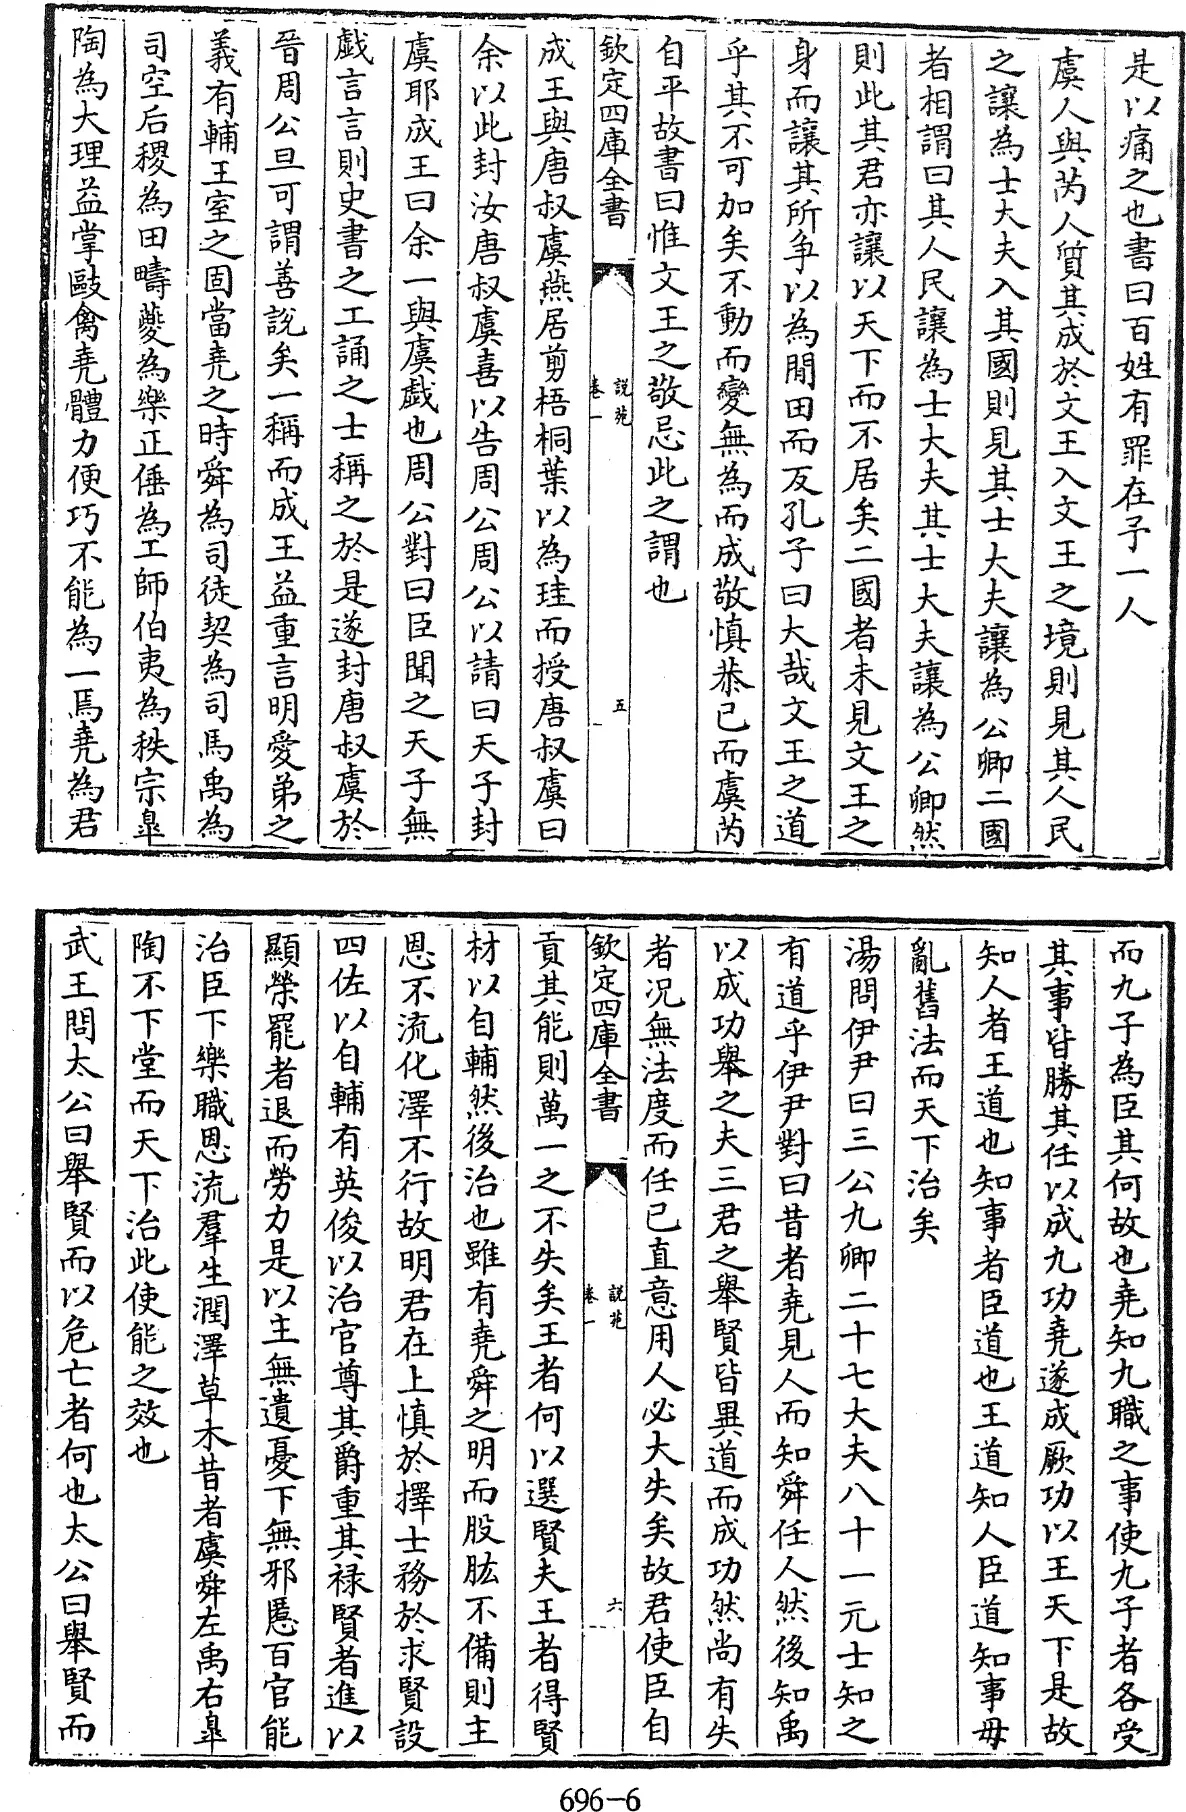 是以痛之也書曰百姓有罪在予一人
虞人與芮人質其成於文王入文王之境則見其人民
之讓為士大夫入其國則見其士大夫讓為公卿二國
者相謂曰其人民讓為士大夫其士大夫讓為公卿然
則此其君亦讓以天下而不居矣二國者未見文王之
身而讓其所爭以為閒田而反孔子曰大哉文王之道
乎其不可加矣不動而變無為而成敬慎恭已而虞芮
自平故書曰惟文王之敬忌此之謂也
欽定四庫全書
說苑
卷一
五
成王與唐叔虞燕居剪梧桐葉以為珪而授唐叔虞曰
余以此封汝唐叔虞喜以告周公周公以請曰天子封
虞耶成王曰余一與虞戯也周公對曰臣聞之天子無
戯言言則史書之工誦之士稱之於是遂封唐叔虞於
晉周公旦可謂善說矣一稱而成王益重言明愛弟之
義有輔王室之固當堯之時舜為司徒契為司馬禹為
司空后稷為田疇夔為樂正倕為工師伯夷為秩宗臯
陶為大理益掌敺禽堯體力便巧不能為一焉堯為君
而九子為臣其何故也堯知九職之事使九子者各受
其事皆勝其任以成九功堯遂成厥功以王天下是故
知人者王道也知事者臣道也王道知人臣道知事毋
亂舊法而天下治矣
湯問伊尹曰三公九卿二十七大夫八十一元士知之
有道乎伊尹對曰昔者堯見人而知舜任人然後知禹
以成功舉之夫三君之舉賢皆異道而成功然尚有失
者况無法度而任已直意用人必大失矣故君使臣自
欽定四庫全書
說苑
卷一
六
貢其能則萬一之不失矣王者何以選賢夫王者得賢
材以自輔然後治也雖有堯舜之明而股肱不備則主
恩不流化澤不行故明君在上慎於擇士務於求賢設
四佐以自輔有英俊以治官尊其爵重其禄賢者進以
顯榮罷者退而勞力是以主無遺憂下無邪慝百官能
治臣下樂職恩流羣生潤澤草木昔者虞舜左禹右臯
陶不下堂而天下治此使能之效也
武王問太公曰舉賢而以危亡者何也太公曰舉賢而
696-6